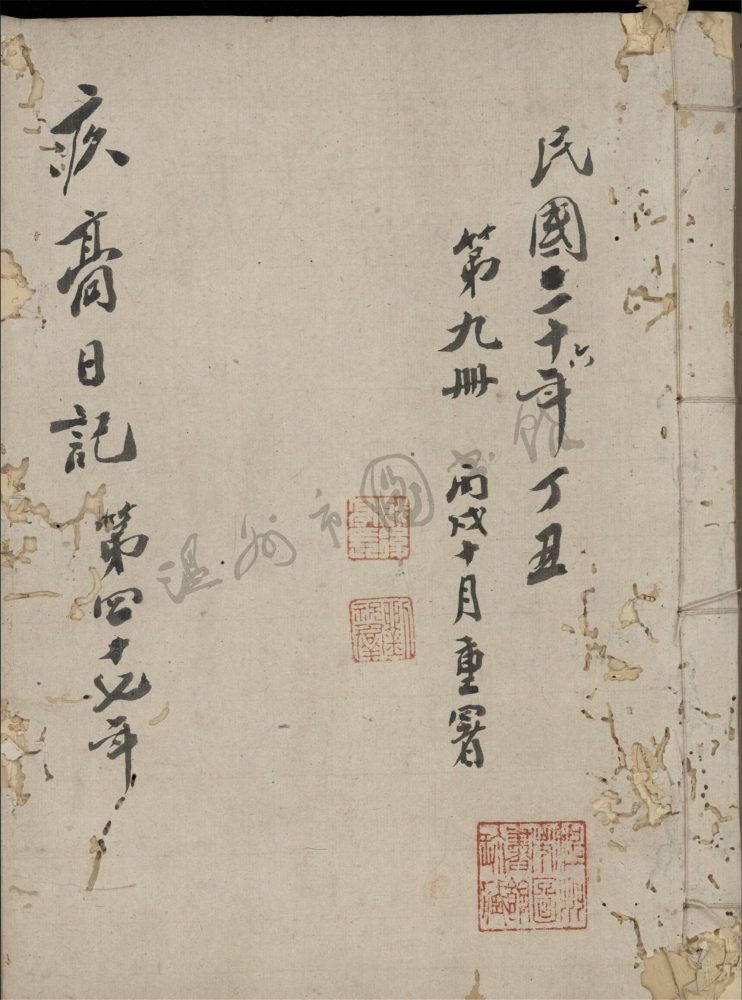 民國二十六年丁丑
第九冊 丙戌十月重署
疚廎日記 第四十七年
溫州市圖書館